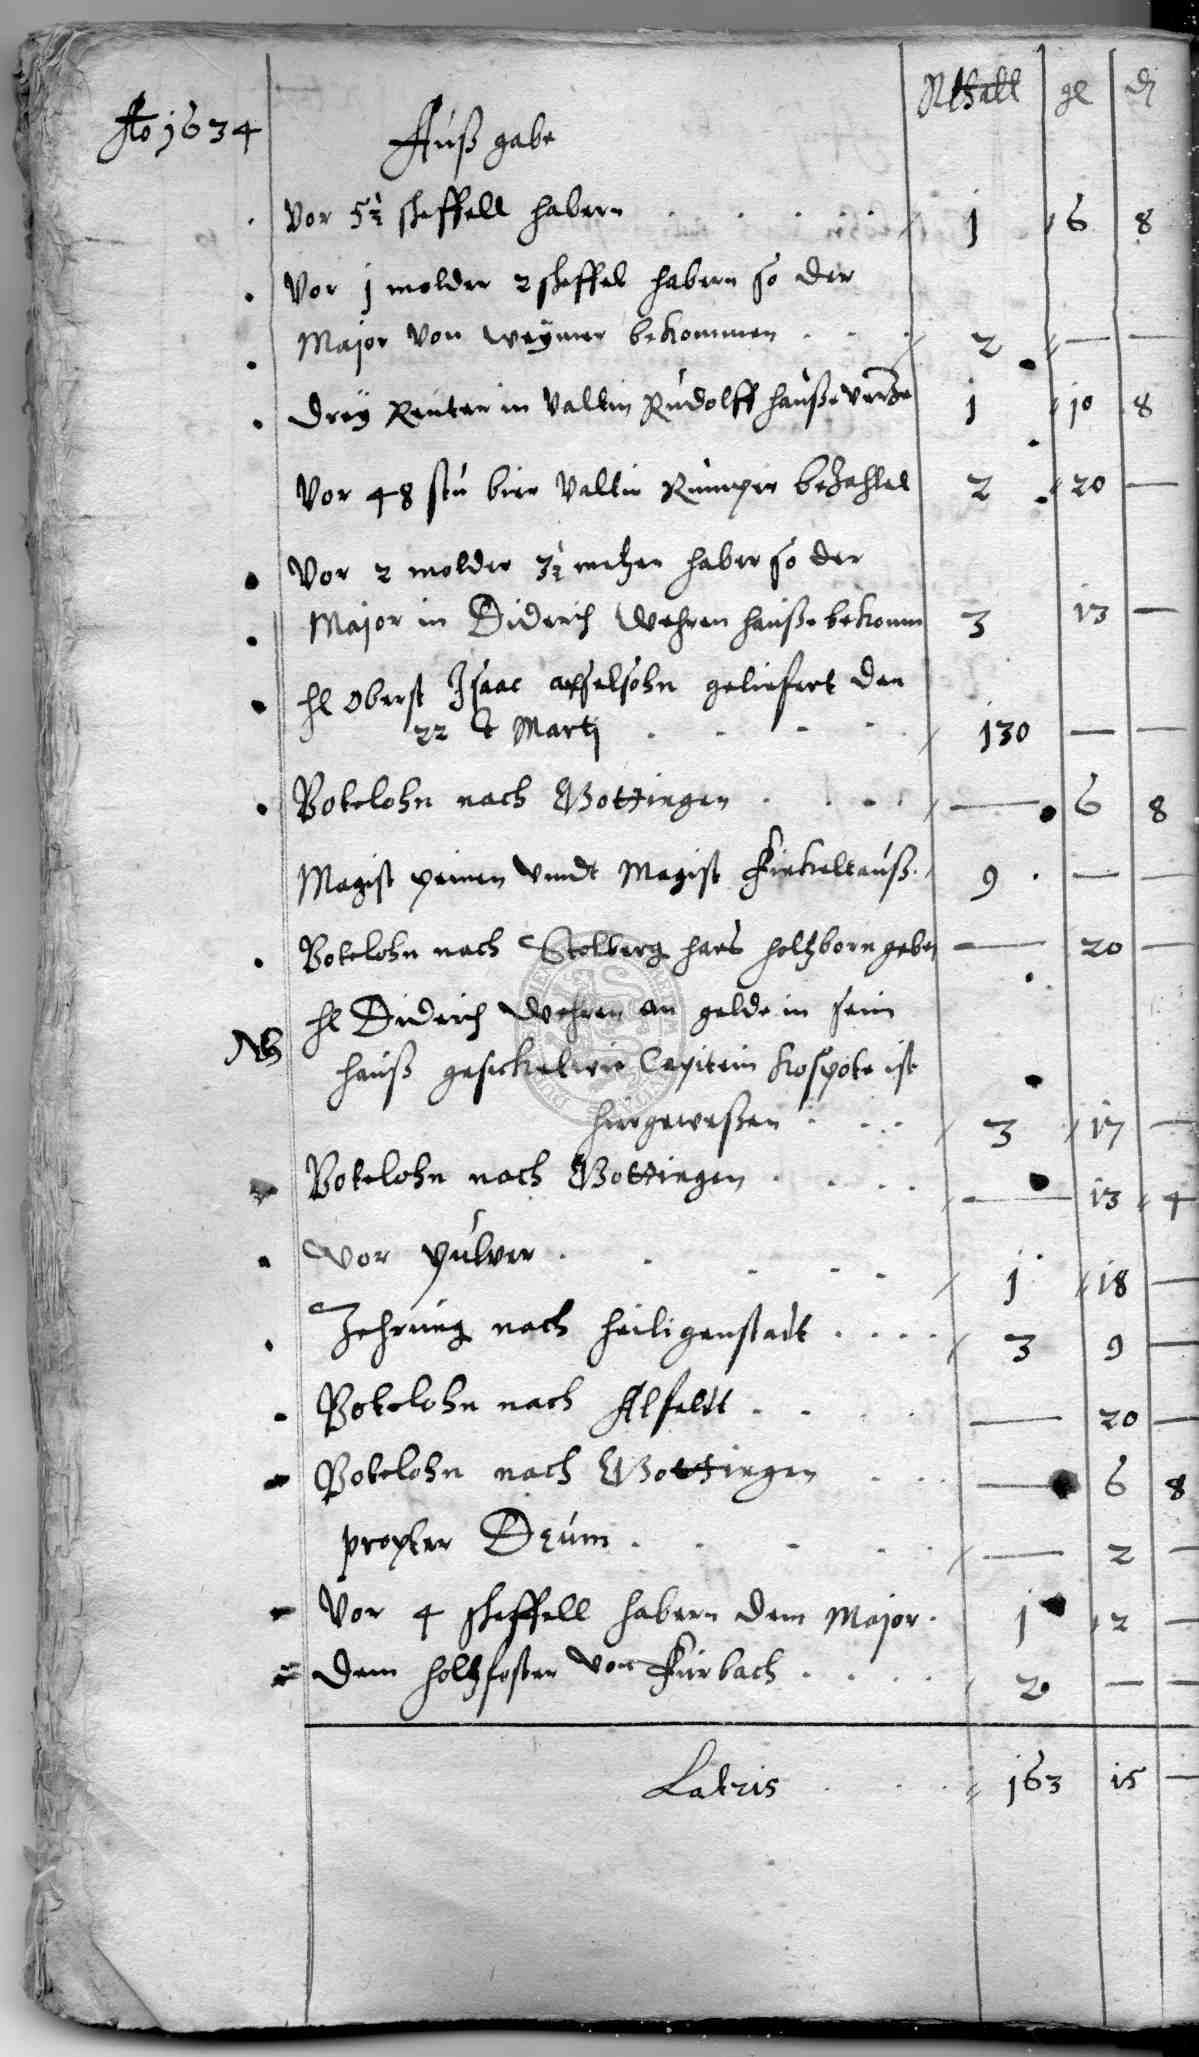 Rthall gl ₰
Ao 1634
Außgabe
Vor 5½ scheffell habern 1 6 8
Vor 1 molder 2 scheffel habern so der
Major von weymer bekommen 2 — —
Drey Reuter in Valtin Rudolff hauße verze 1 10 8
Vor 48 stu bier Valtin Rumpir bezahlet 2 20 —
Vor 2 molder 3½ metzen haber so der
Major in Diderich Wehren hauße bekomm 3 13 —
hl Oberst Isaac apselsohn geliefert den
22 t Martij 130 — —
Botelohn nach Gottingen — 6 8
Magist peinen vundt Magist Finkeltauß 9 — —
Botelohn nach Stolberg hans holtzborn geben — 20 —
NB hl Diderich Wehren an gelde in sein
hauß geschicket wie Capitein Kospote ist
hier geweßen 3 17 —
Botelohn nach Gottingen — 13 4
Vor pulver 1 18 —
Zehrung nach heiligenstadt 3 9 —
Botelohn nach Alfeldt — 20 —
Botelohn nach Gottingen — 6 8
propter Deum — 2 —
Vor 4 scheffell habern dem Major 1 12 —
Dem holtzfoster von Furbach 2 — —
Latris 163 15 —